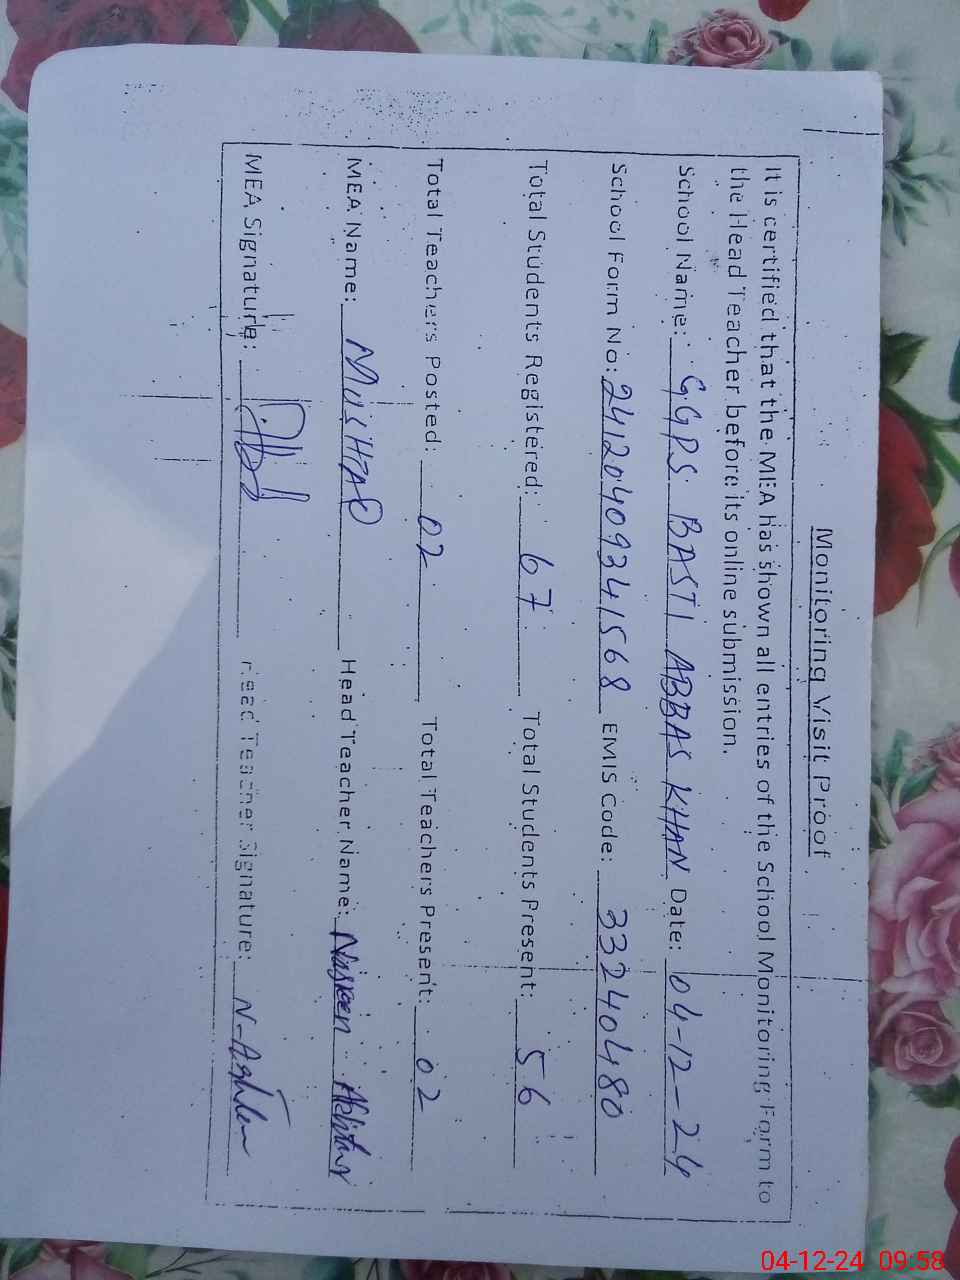 Monitoring Visit Proof
It is certified that the MEA has shown all entries of the School Monitoring Form to
the Head Teacher before its online submission.
School Name: GGPS BASTI ABBAS KHAN Date: 04-12-24
School Form No: 24120409341568 EMIS Code: 33240480
Total Students Registered: 67 Total Students Present: 56
Total Teachers Posted: 02 Total Teachers Present: 02
MEA Name: MUSHTAQ Head Teacher Name: Nasreen Akhtar
MEA Signature: Head Teacher Signature: N-Akhtar
04-12-24 09:58